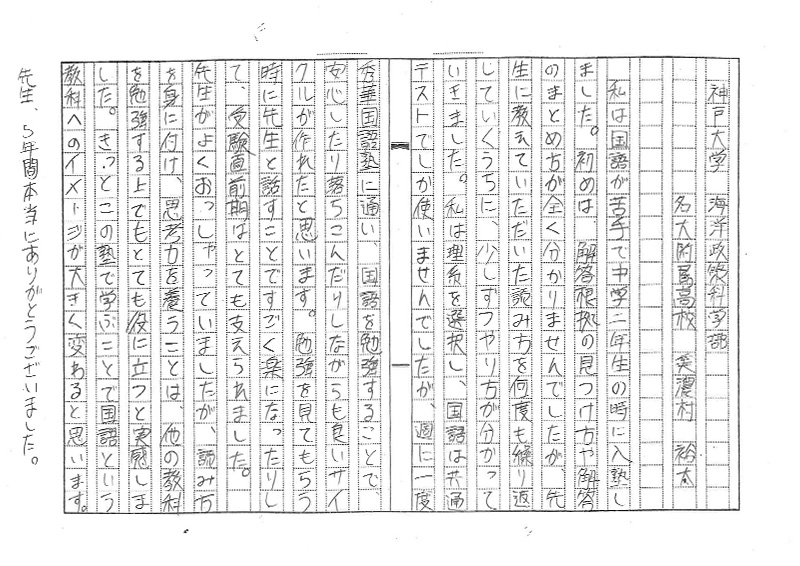 神戸大学 海洋政策科学部
名大附属高校 美濃村 裕太
私は国語が苦手で中学二年生の時に入塾し
ました。初めは、解答根拠の見つけ方や解答
のまとめ方が全く分かりませんでしたが、先
生に教えていただいた読み方を何度も繰り返
していくうちに、少しずつやり方が分かって
いきました。私は理系を選択し、国語は共通
テストでしか使いませんでしたが、週に一度
秀華国語塾に通い、国語を勉強することで、
安心したり落ちこんだりしながらも良いサイ
クルが作れたと思います。勉強を見てもらう
時に先生と話すことですごく楽になったりし
て、受験直前期はとても支えられました。
先生がよくおっしゃっていましたが、読み方
を身に付け、思考力を養うことは、他の教科
を勉強する上でもとても役に立つと実感しま
した。きっとこの塾で学ぶことで国語という
教科へのイメージが大きく変わると思います。
先生、5年間本当にありがとうございました。